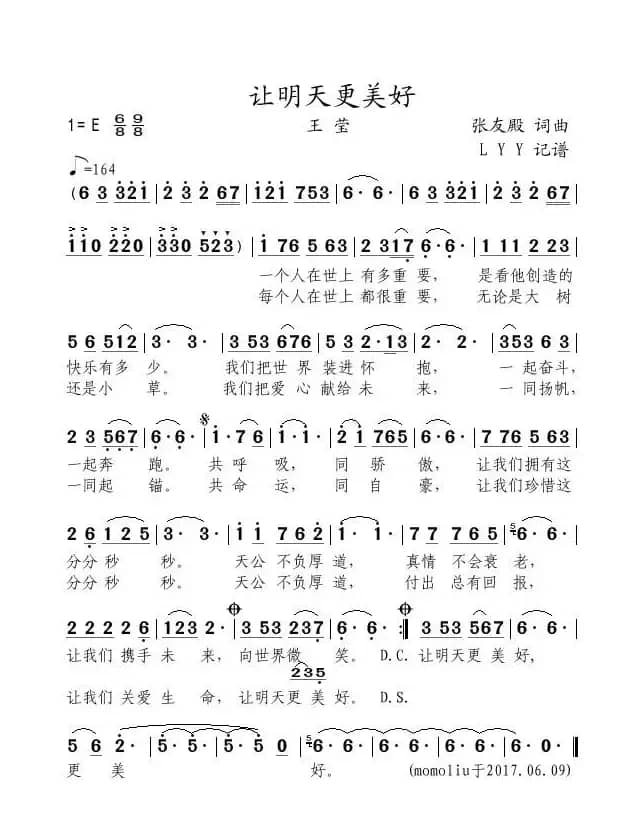 让明天更美好
1=E 6/8 9/8 王 莹 张友殿 词曲
L Y Y 记谱
♪=164
(6 3 321 | 2 3 2 67 | 121 753 | 6· 6· | 6 3 321 | 2 3 2 67 |
110 220 | 330 523) | 1 76 5 63 | 2 317 6· 6· | 1 11 2 23 |
一个人在世上 有多重 要, 是看他创造的
每个人在世上 都很重 要, 无论是大 树
5 6 512 | 3· 3· | 3 53 676 | 5 32·13 | 2· 2· | 353 6 3 |
快乐有多 少。 我们把世 界 装进 怀 抱, 一 起奋斗,
还是小 草。 我们把爱 心 献给 未 来, 一 同扬帆,
2 3 567 | 6· 6· | 1· 76 | 1· 1· | 2 1 765 | 6· 6· | 7 76 563 |
一起奔 跑。 共 呼 吸, 同 骄 傲, 让我们拥有这
一同起 锚。 共 命 运, 同 自 豪, 让我们珍惜这
2 6 1 2 5 | 3· 3· | 1 1 7 6 2 | 1· 1· | 7 7 7 6 5 | 5 6· 6· |
分分 秒 秒。 天公 不负厚 道, 真情 不会衰 老,
分分 秒 秒。 天公 不负厚 道, 付出 总有回 报,
2 2 2 2 6 | 123 2· | 3 53 237 | 6· 6· :| 3 53 567 | 6· 6· |
让我们 携手 未 来, 向世界微 笑。 D.C. 让明天更 美 好,
235
让我们 关爱 生 命, 让明天更 美 好。 D.S.
5 6 2· | 5· 5· | 5· 5· | 5 0 | 5 6· 6· | 6· 6· | 6· 6· | 6 0 ‖
更 美 好。 (momoliu于2017.06.09)